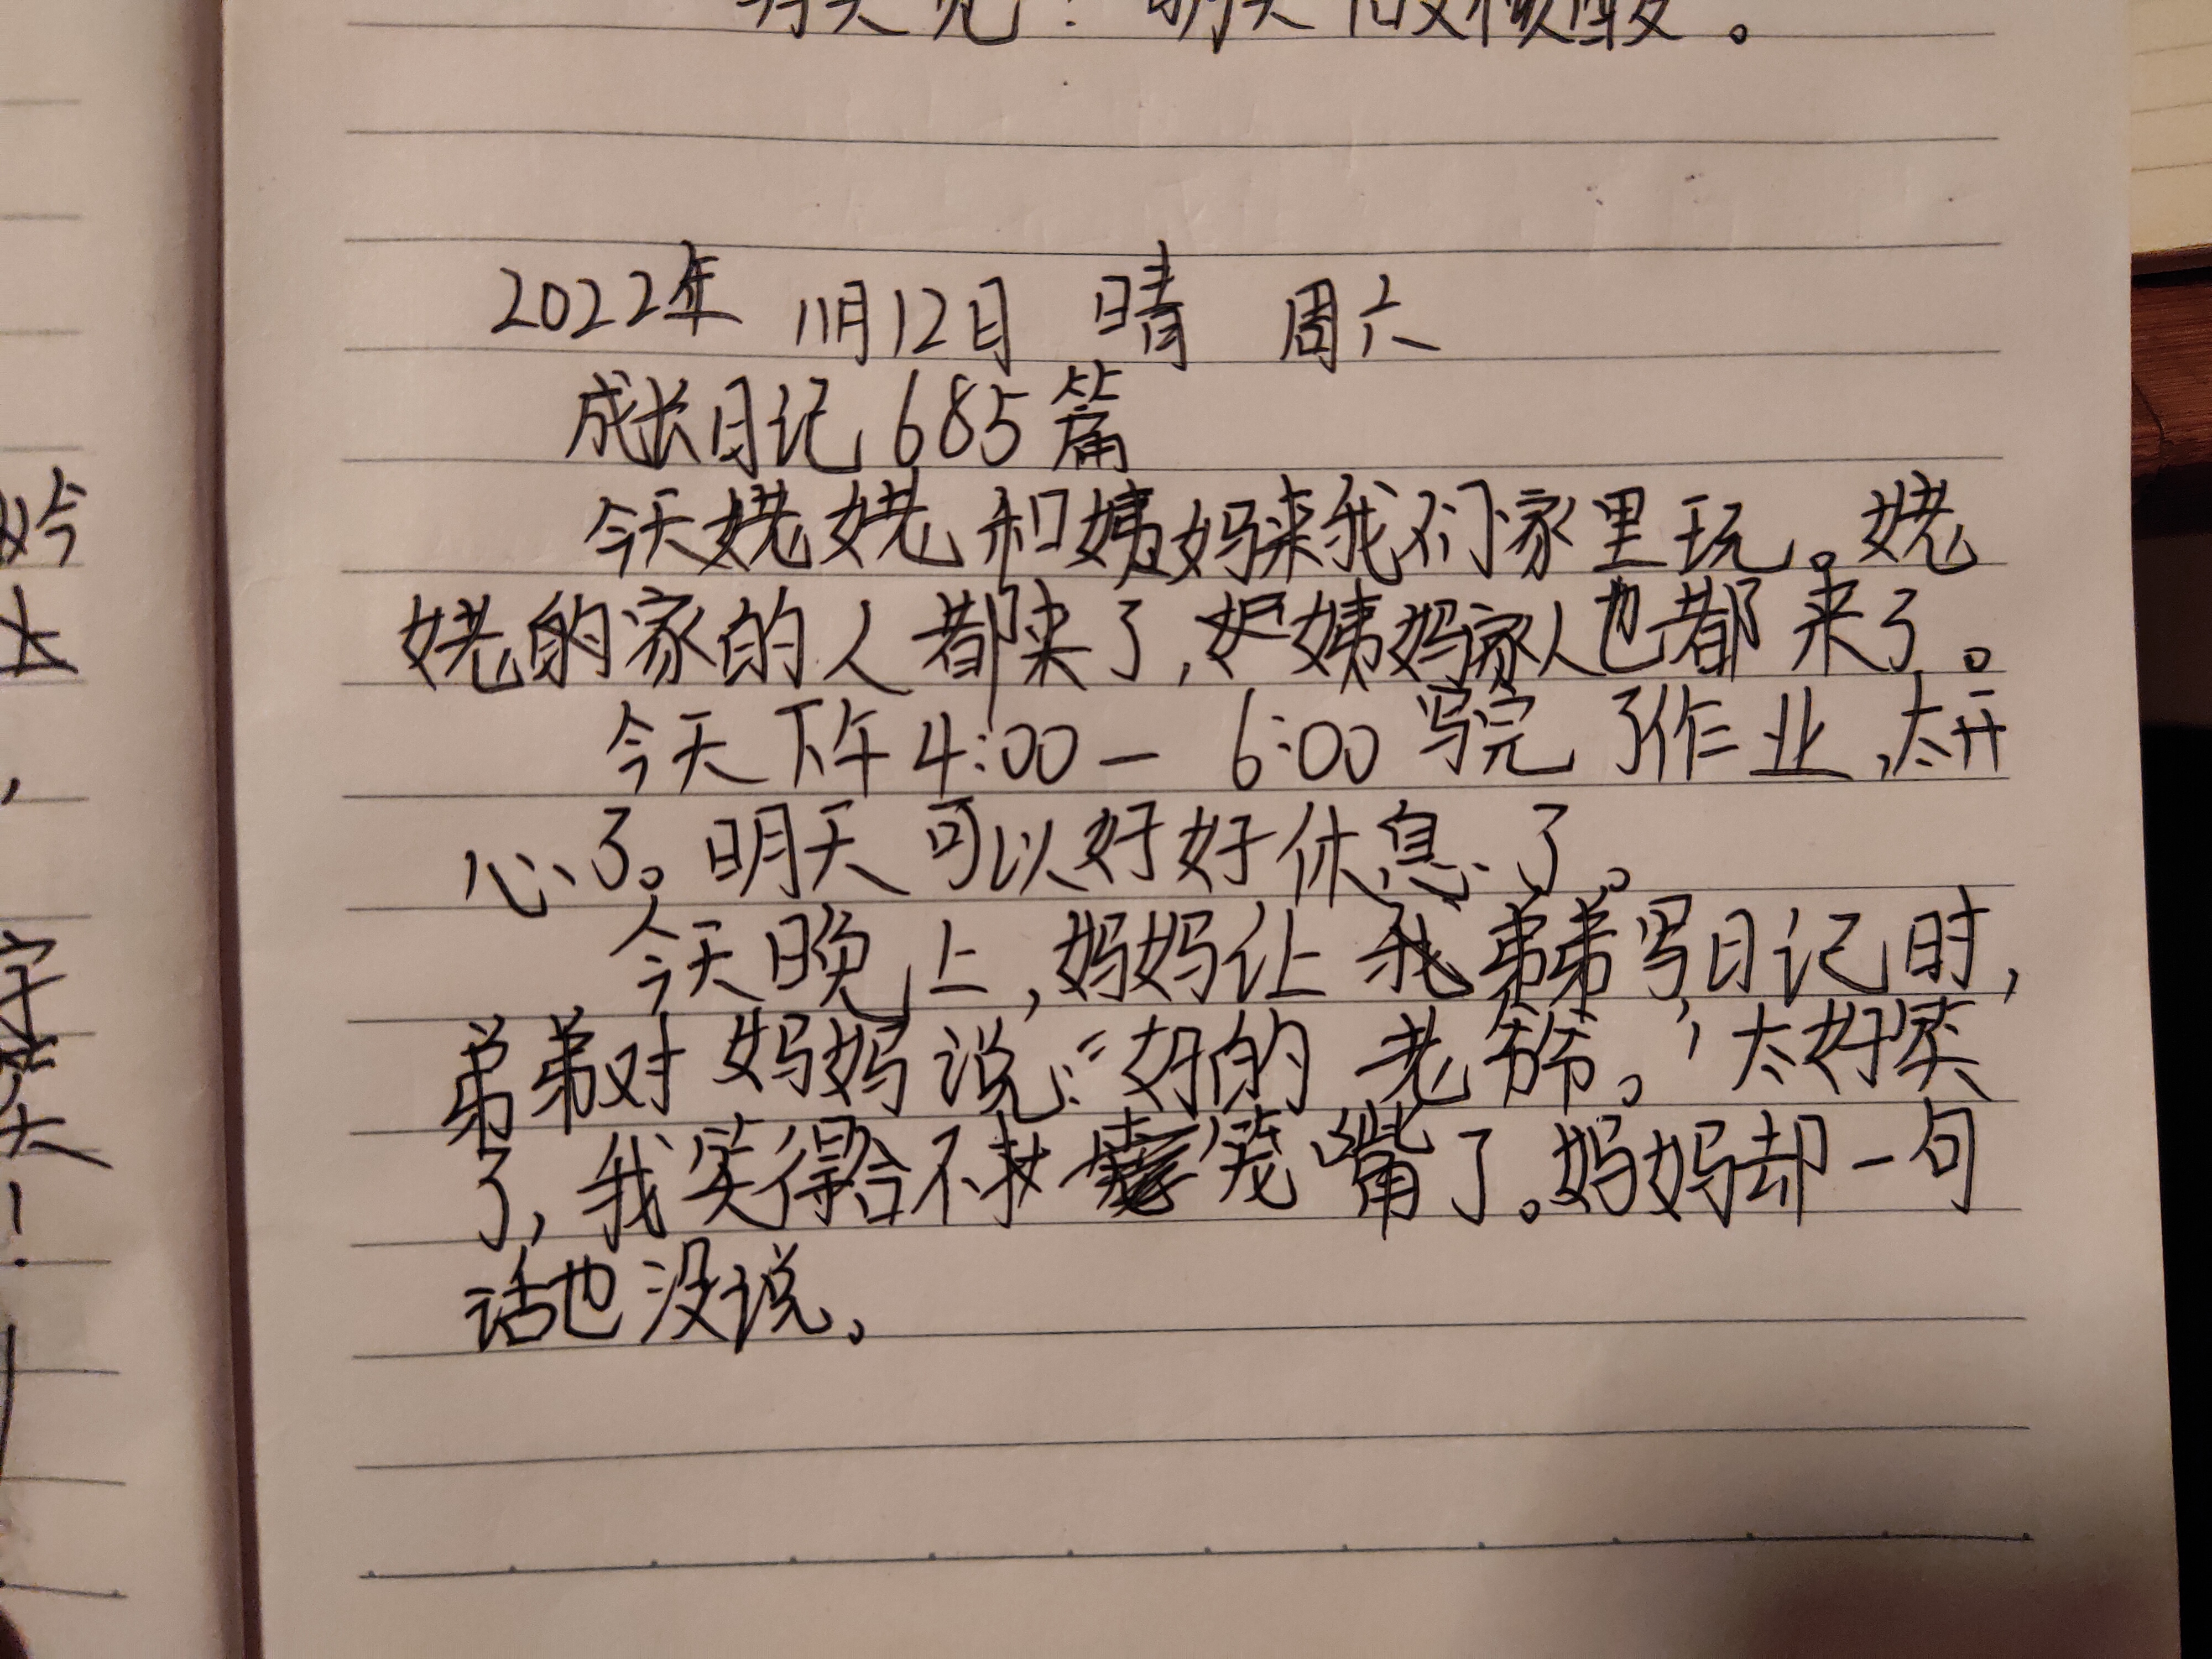 明天做核酸。
2022年 11月12日 晴 周六
成长日记685篇
今天姥姥和姨妈来我们家里玩。姥
姥的家的人都来了,姨妈家人也都来了。
今天下午4:00－6:00写完了作业,太开
心了。明天可以好好休息了。
今天晚上,妈妈让我弟弟写日记时,
弟弟对妈妈说:“好的老爷。”太好笑
了,我笑得合不拢嘴了。妈妈却一句
话也没说。